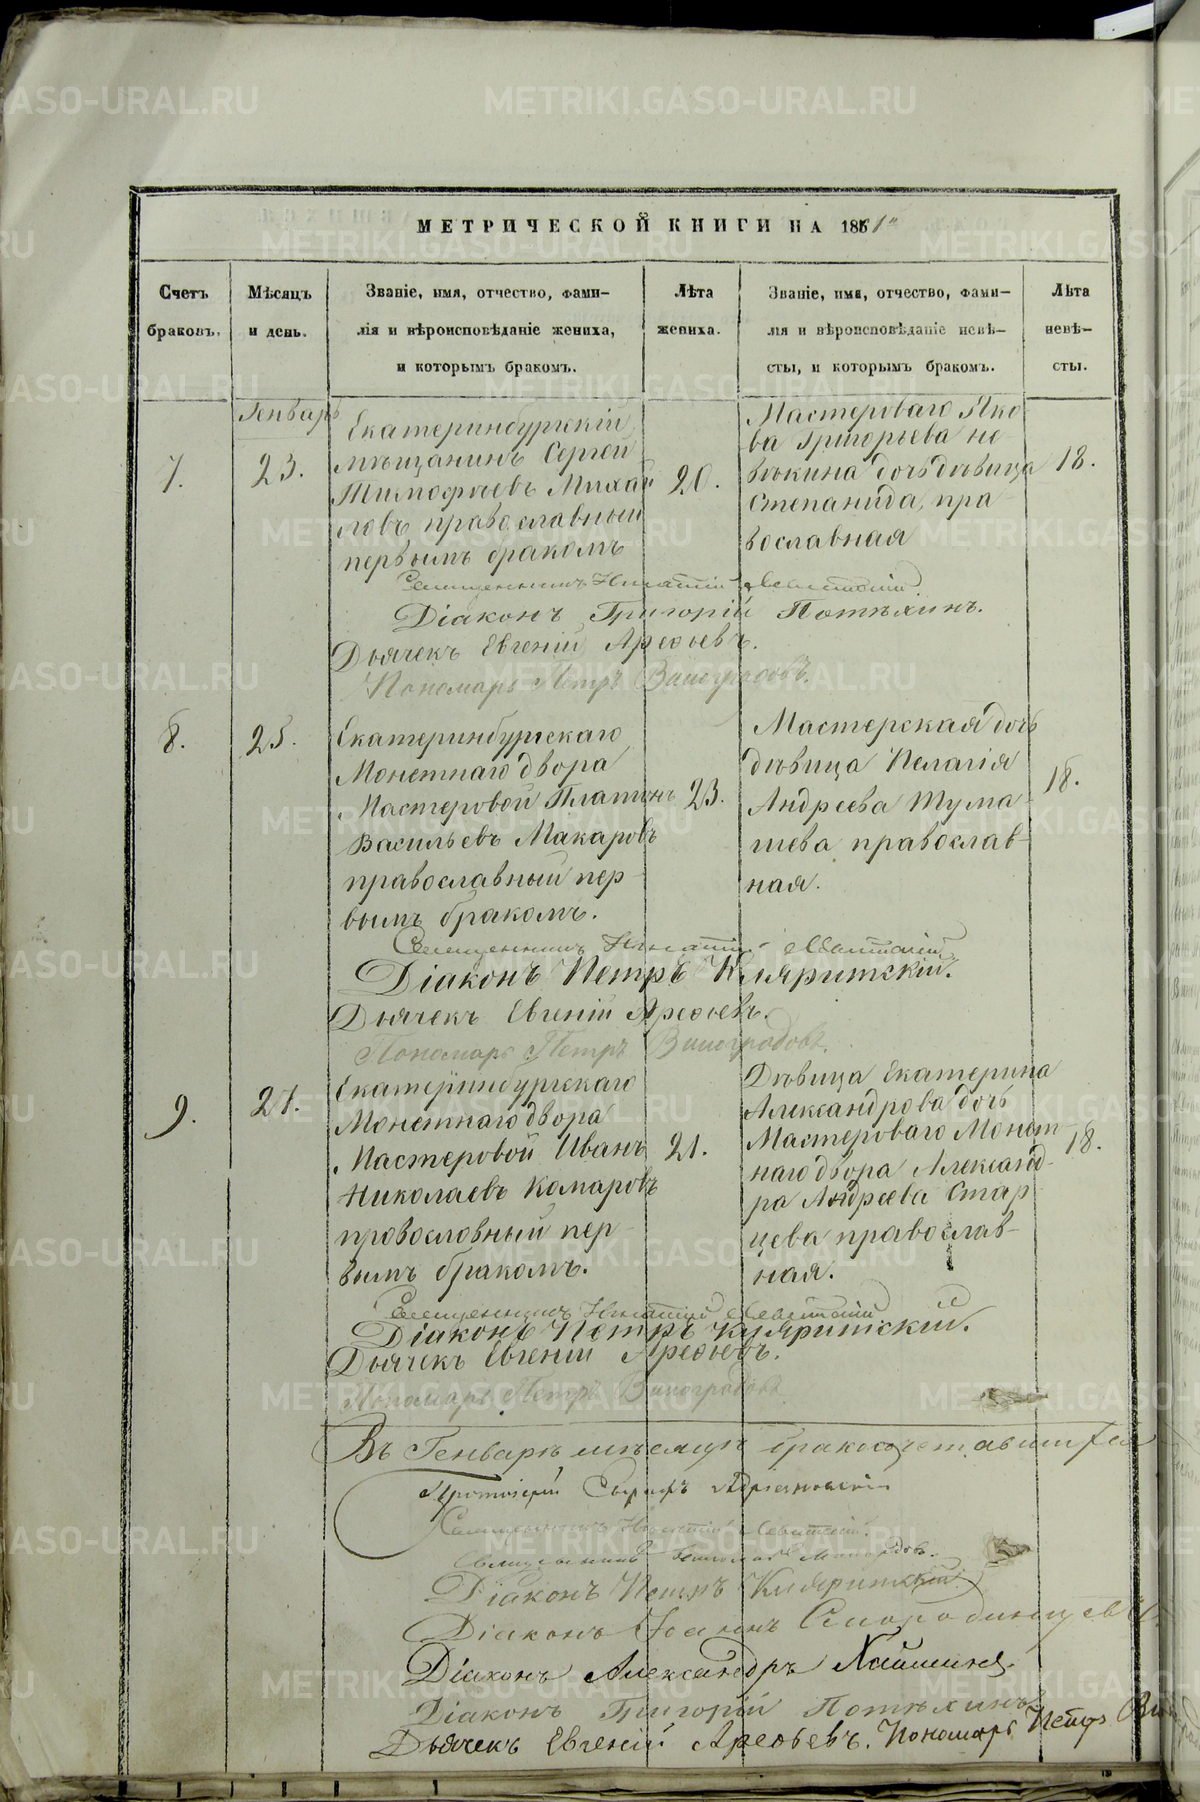 МЕТРИЧЕСКОЙ КНИГИ НА 1861
Счетъ браковъ.
Мѣсяцъ и день.
Званіе, имя, отчество, фами-
лія и вѣроисповѣданіе жениха,
и которымъ бракомъ.
Лѣта жениха.
Званіе, имя, отчество, фами-
лія и вѣроисповѣданіе невѣ-
сты, и которымъ бракомъ.
Лѣта невѣ-
сты.
Генварь
7.
23.
Екатеринбургскій
мѣщанинъ Сергей
Тимофѣевъ Михай
ловъ православный
первымъ бракомъ
20.
Мастероваго Яко
ва Григорьева
дочь дѣвица
Степанида, пра
вославная
18.
Священникъ Игнатій Левитскій.
Діаконъ Григорій Потѣхинъ.
Дьячекъ Евгеній Арефьевъ.
Пономарь Петръ Виноградовъ.
8.
25.
Екатеринбургскаго
Монетнаго двора
Мастеровой Платонъ
Васильевъ Макаровъ
православный пер-
вымъ бракомъ.
23.
Мастерская дочь
дѣвица Пелагія
Андреева Тума-
шева православ-
ная.
18.
Священникъ Игнатій Левитскій
Діаконъ Петръ
Дьячекъ Евгеній Арефьевъ.
Пономарь Петръ Виноградовъ.
9.
27.
Екатеринбургскаго
Монетнаго двора
Мастеровой Иванъ
Николаевъ Комаровъ
провословный пер-
вымъ бракомъ.
21.
Дѣвица Екатерина
Александрова дочь
Мастероваго Монет
наго двора Александ-
ра Андреева Стар
цева православ-
ная.
18.
Священникъ Игнатій Левитскій
Діаконъ Петръ
Дьячекъ Евгеній Арефьевъ.
Пономарь Петръ Виноградовъ
Въ Генварѣ мѣсяцѣ бракосочетавшихся
Протоіерей
Священникъ Игнатій Левитскій.
Священникъ
Діаконъ Петръ
Діаконъ Іоаннъ Смородинцевъ
Діаконъ Александръ
Діаконъ Григорій Потѣхинъ
Дьячекъ Евгеній Арефьевъ. Пономарь Петръ
METRIKI.GASO-URAL.RU